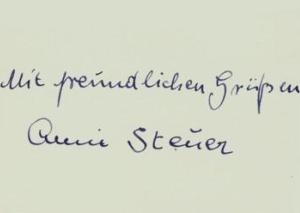 Mit freundlichen Grüßen
Anni Steuer